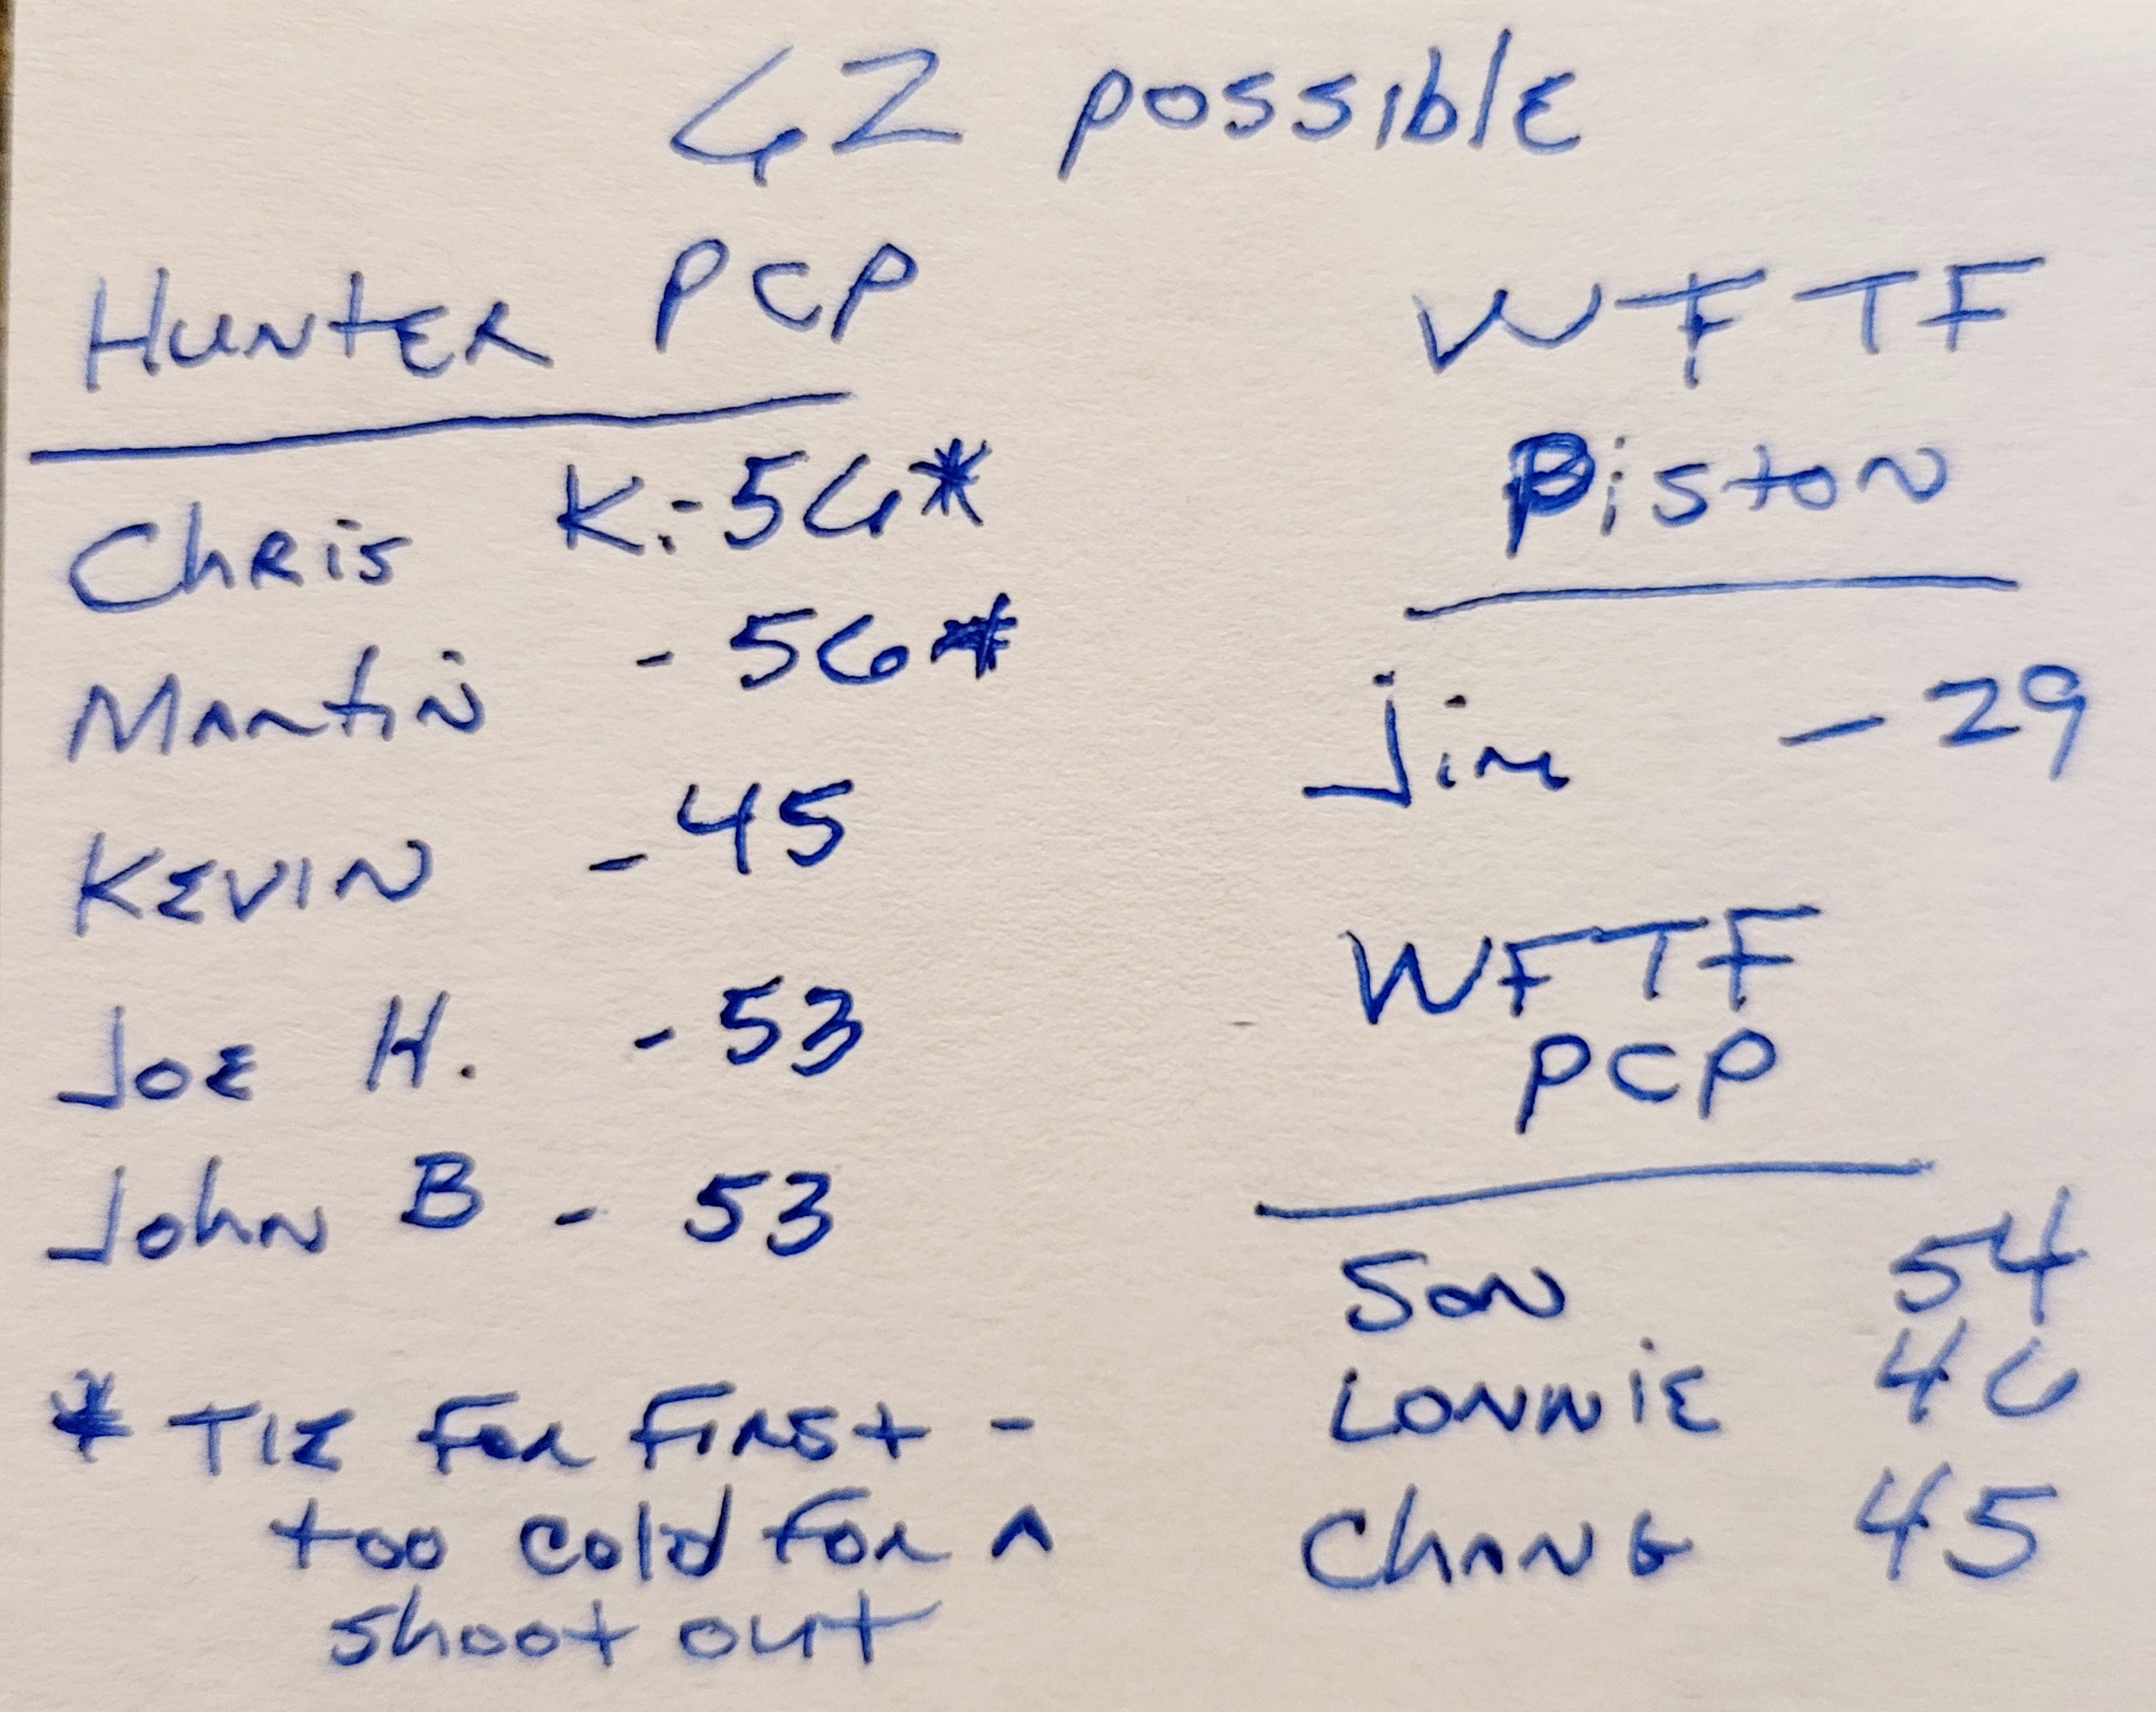 62 possible
HUNTER PCP
Chris K. - 56*
Martin - 56*
KEVIN - 45
JOE H. - 53
John B - 53
* TIE For First -
too cold for A
shoot out
WFTF
Piston
Jim - 29
WFTF
PCP
Son 54
LONNIE 46
ChANG 45